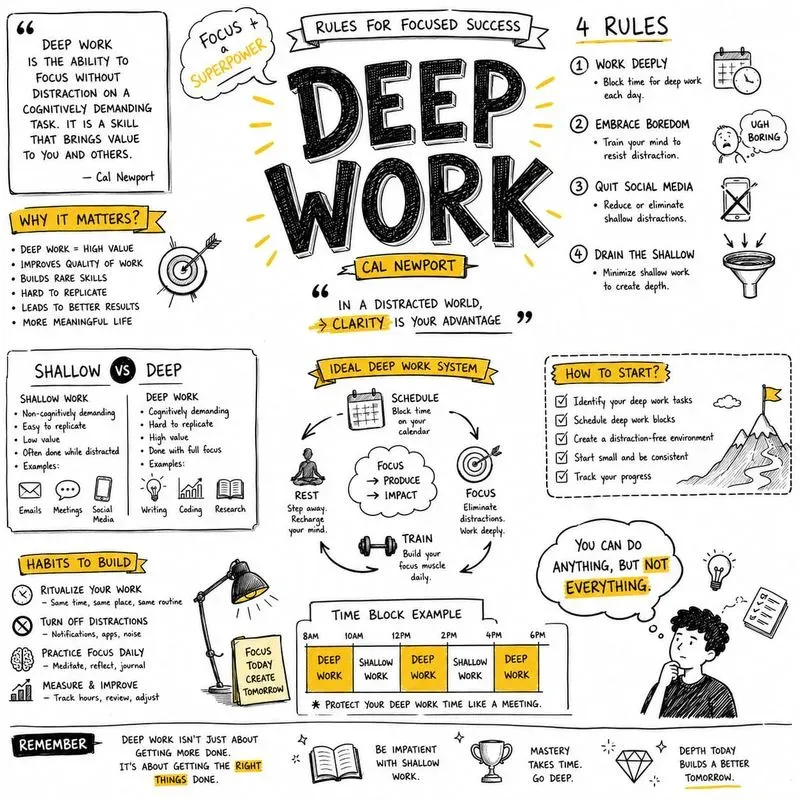 “
DEEP WORK
IS THE ABILITY TO
FOCUS WITHOUT
DISTRACTION ON A
COGNITIVELY DEMANDING
TASK. IT IS A SKILL
THAT BRINGS VALUE
TO YOU AND OTHERS.
— Cal Newport
FOCUS +
a
SUPERPOWER
RULES FOR FOCUSED SUCCESS
DEEP
WORK
CAL NEWPORT
“ IN A DISTRACTED WORLD,
→ CLARITY IS YOUR ADVANTAGE ”
4 RULES
1 WORK DEEPLY
• Block time for deep work
each day.
2 EMBRACE BOREDOM
• Train your mind to
resist distraction.
UGH
BORING
3 QUIT SOCIAL MEDIA
• Reduce or eliminate
shallow distractions.
4 DRAIN THE SHALLOW
• Minimize shallow work
to create depth.
WHY IT MATTERS?
• DEEP WORK = HIGH VALUE
• IMPROVES QUALITY OF WORK
• BUILDS RARE SKILLS
• HARD TO REPLICATE
• LEADS TO BETTER RESULTS
• MORE MEANINGFUL LIFE
SHALLOW VS DEEP
SHALLOW WORK
• Non-cognitively demanding
• Easy to replicate
• Low value
• Often done while distracted
• Examples:
Emails
Meetings
Social
Media
DEEP WORK
• Cognitively demanding
• Hard to replicate
• High value
• Done with full focus
• Examples:
Writing
Coding
Research
IDEAL DEEP WORK SYSTEM
SCHEDULE
Block time
on your
calendar
FOCUS
→ PRODUCE
→ IMPACT
REST
Step away.
Recharge
your mind.
FOCUS
Eliminate
distractions.
Work deeply.
TRAIN
Build your
focus muscle
daily.
HOW TO START?
Identify your deep work tasks
Schedule deep work blocks
Create a distraction-free environment
Start small and be consistent
Track your progress
HABITS TO BUILD
RITUALIZE YOUR WORK
– Same time, same place, same routine
TURN OFF DISTRACTIONS
– Notifications, apps, noise
PRACTICE FOCUS DAILY
– Meditate, reflect, journal
MEASURE & IMPROVE
– Track hours, review, adjust
FOCUS
TODAY
CREATE
TOMORROW
TIME BLOCK EXAMPLE
8AM 10AM 12PM 2PM 4PM 6PM
DEEP SHALLOW DEEP SHALLOW DEEP
WORK WORK WORK WORK WORK
* PROTECT YOUR DEEP WORK TIME LIKE A MEETING.
YOU CAN DO
ANYTHING, BUT NOT
EVERYTHING.
REMEMBER
DEEP WORK ISN'T JUST ABOUT
GETTING MORE DONE.
IT'S ABOUT GETTING THE RIGHT
THINGS DONE.
BE IMPATIENT
WITH SHALLOW
WORK.
MASTERY
TAKES TIME.
GO DEEP.
DEPTH TODAY
BUILDS A BETTER
TOMORROW.